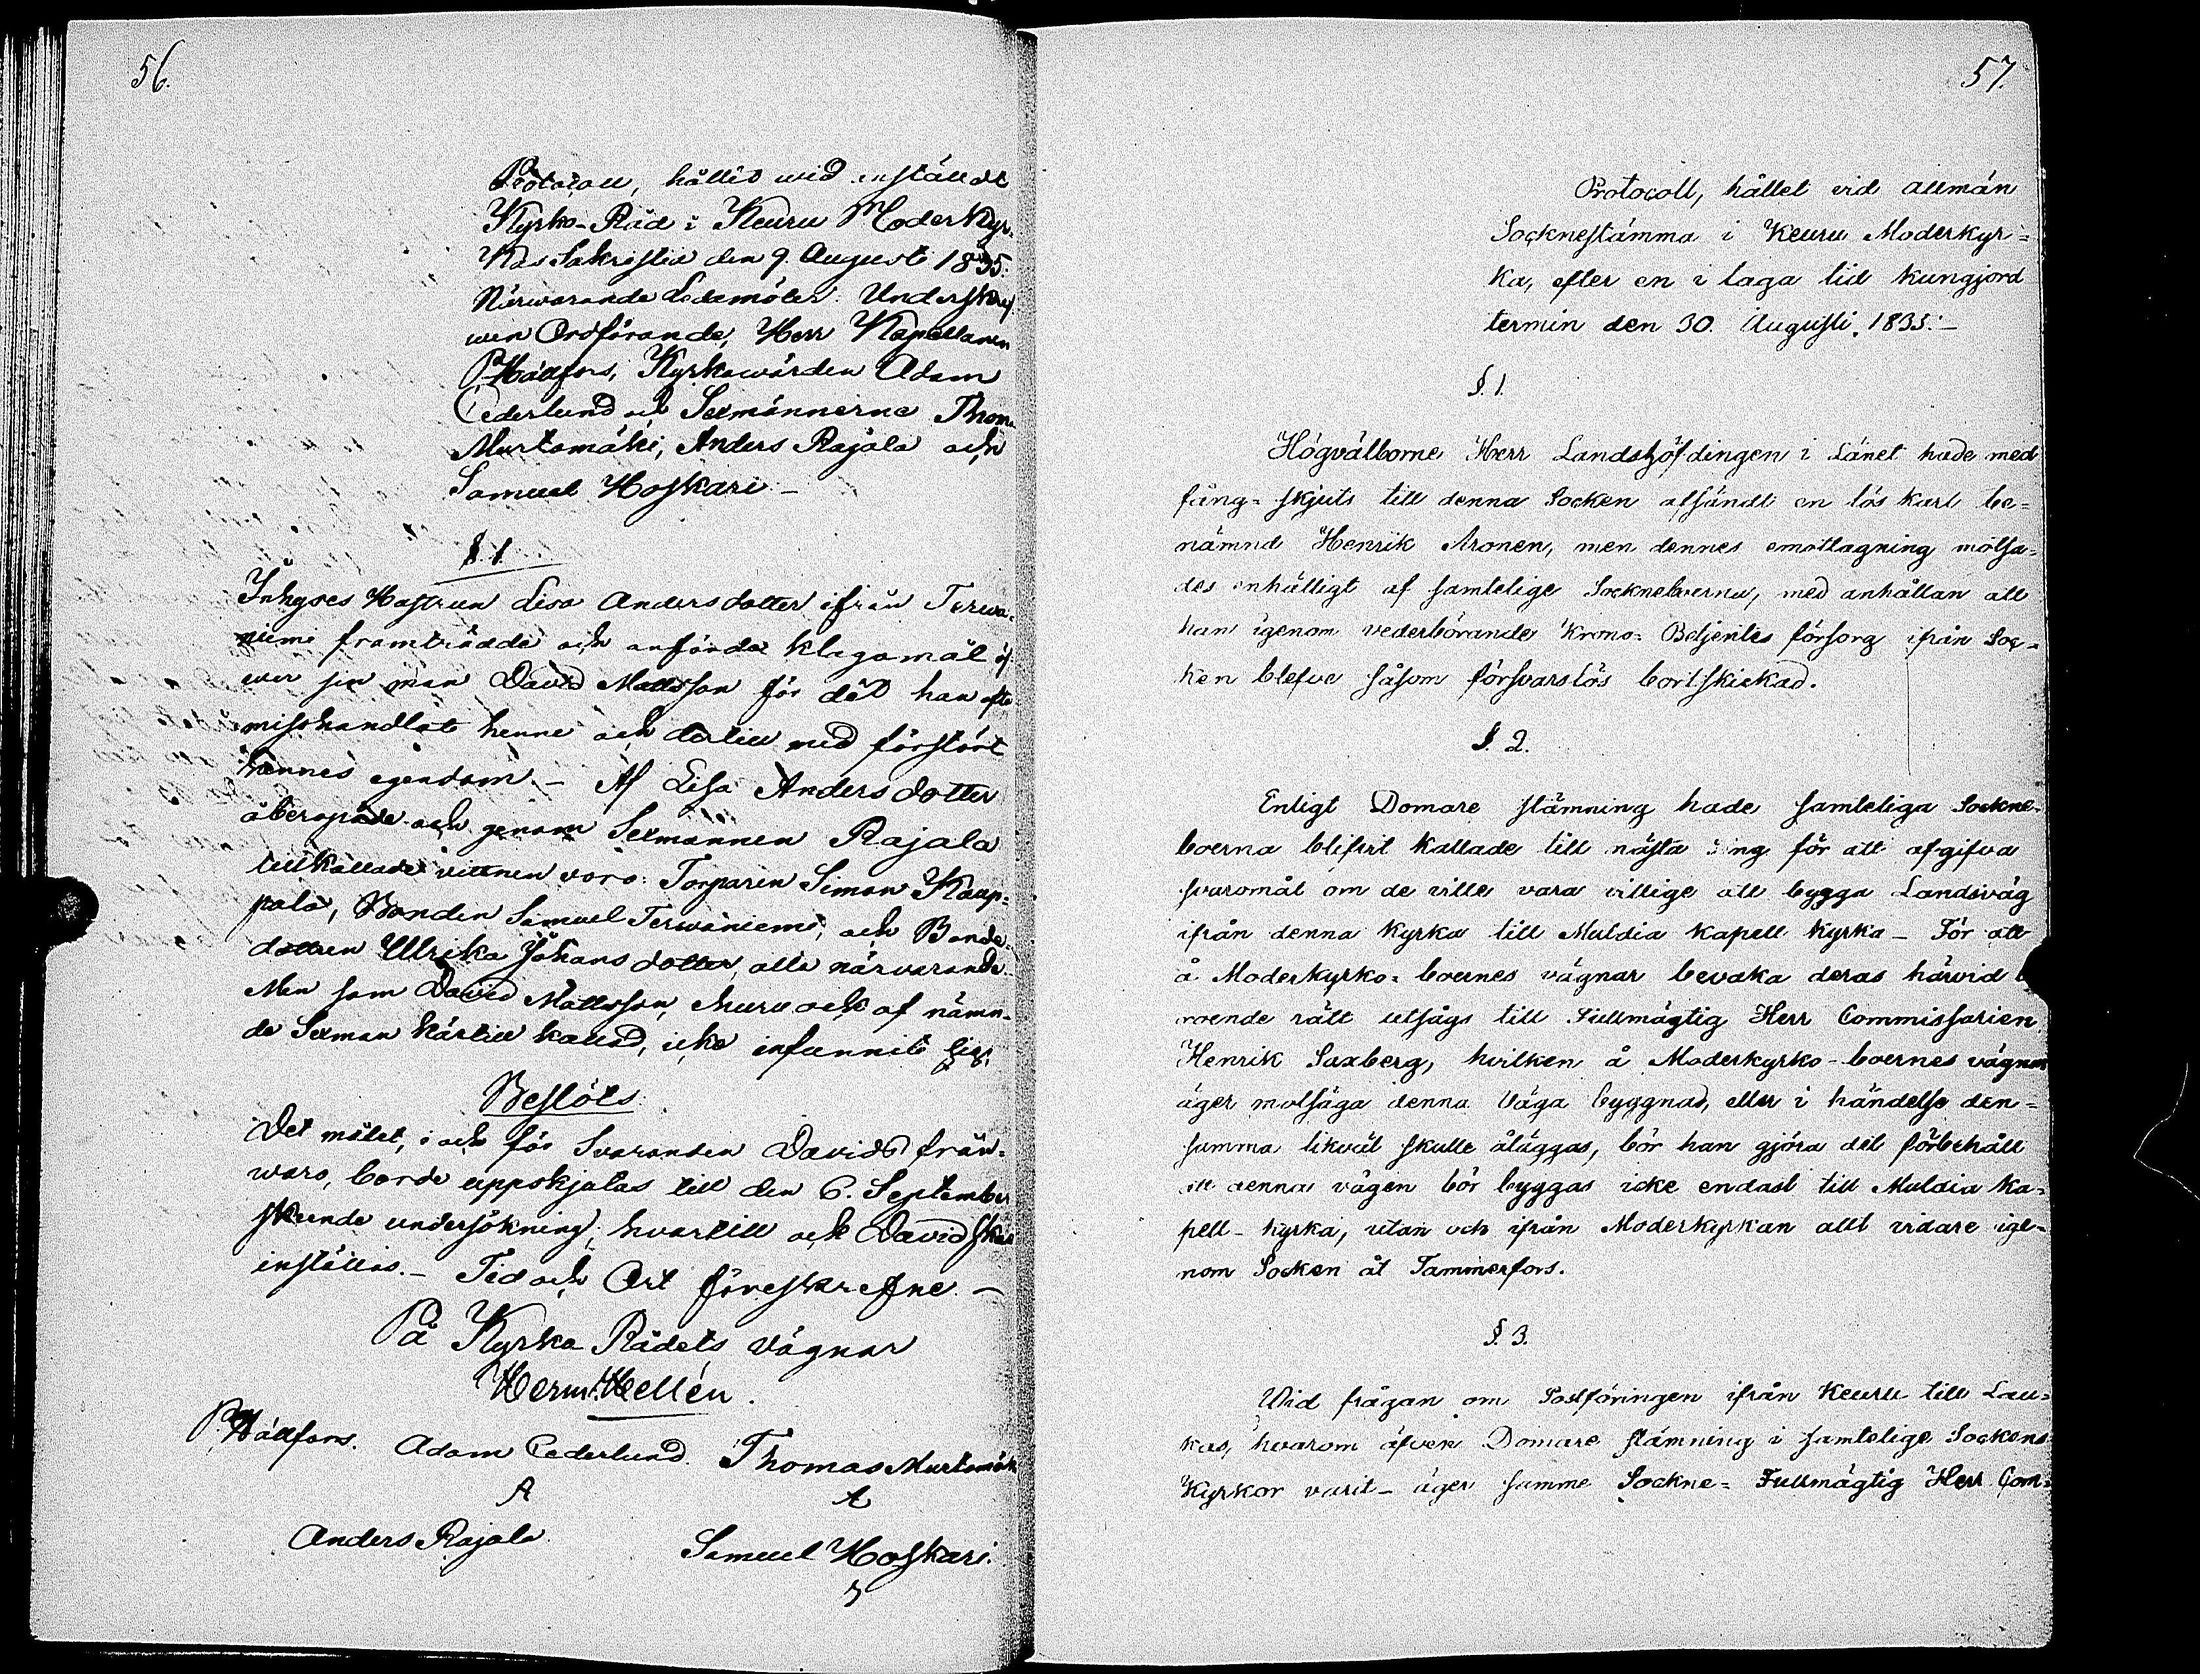 56.
Protocoll, hållit wid instäldt
Kyrko-Råd i Keuru Moder Kyr-
kas Sakristia den 9. Augusti 1835.
Närwarande Ledamöter: Underskref-
wen Ordförande, Herr Kapellanen
P. Hällfors, Kyrkowärden Adam
Cederlund och Sexmännerne Thom.
Murtomäki, Anders Rajala och
Samuel Hoskari –
§. 1.
Inhyses Hustrun Lisa Andersdotter ifrån Terwa-
niemi framträdde och anförde klagomål öf-
wer sin man David Mattsson för det han ofta
misshandlat henne och dertill med förstört
hennes egendom. – Af Lisa Andersdotter
åberopade och genom Sexmannen Rajala
tillkallade vittnen voro: Torparen Simon Kaup-
pala, Bonden Samuel Terwaniemi, och Bonde-
dottren Ullrika Johansdotter, alla närvarande.
Men som David Mattsson, churu ock af nämn-
de Sexman härtill kallad, icke infunnit sig;
Beslöts:
Det målet, i och för Svaranden Davids från-
waro, borde uppskjutas till den 6. September
skeende undersökning; hvartill ock David skall
inställas. – Tid och Ort föreskrefne. –
På Kyrko Rådets vägnar
Herm. Hellén.
P. Hällfors. Adam Cederlund. Thomas Murtomäki
A A
Anders Rajala Samuel Hoskari.
57.
Protocoll, hållet vid allmän
Socknestämma i Keuru Moderkyr=
ka, efter en i laga tid kungjord
termin den 30. Augusti, 1835. –
§. 1.
Högvälborne Herr Landshöfdingen i Länet hade med
fång= skjuts till denna Socken afsändt en lös karl be=
nämnd Henrik Aronen, men dennes emottagning motsa=
des enhälligt af samtelige Sockneboerne, med anhållan att
han igenom vederbörande Krono= Betjentes försorg ifrån Soc=
ken blefve såsom försvarslös bortskickad.
§. 2.
Enligt Domare stämning hade samteliga Sockne-
boerna blifvit kallade till nästa ting för att afgifva
svaromål om de ville vara villige att bygga Landsväg
ifrån denna kyrka till Multia Kapell kyrka – För att
å Moderkyrko= boernes vägnar bevaka deras härvid
roende rätt utsågs till Fullmägtig Herr Commissarien
Henrik Saxberg, hvilken å Moderkyrko-boernes vägnar
äger motsäga denna Väga byggnad, eller i händelse den=
samma likväl skulle åläggas, bör han gjöra det förbehåll
att denna vägen bör byggas icke endast till Muldia Ka=
pell- kyrka, utan och ifrån Moderkyrkan allt vidare ige=
nom Socken åt Tammerfors.
§. 3.
Vid frågan om Postföringen ifrån Keuru till Lau=
kas, hvarom äfven Domare stämning i samtelige Sockens
Kyrkor varit – äger samme Sockne= Fullmägtig Herr Com=